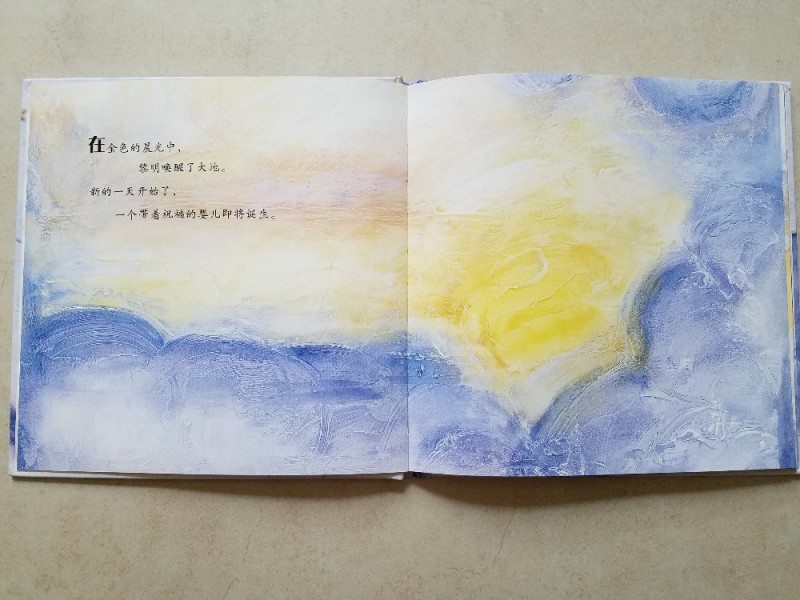 在金色的晨光中，
黎明唤醒了大地。
新的一天开始了，
一个带着祝福的婴儿即将诞生。